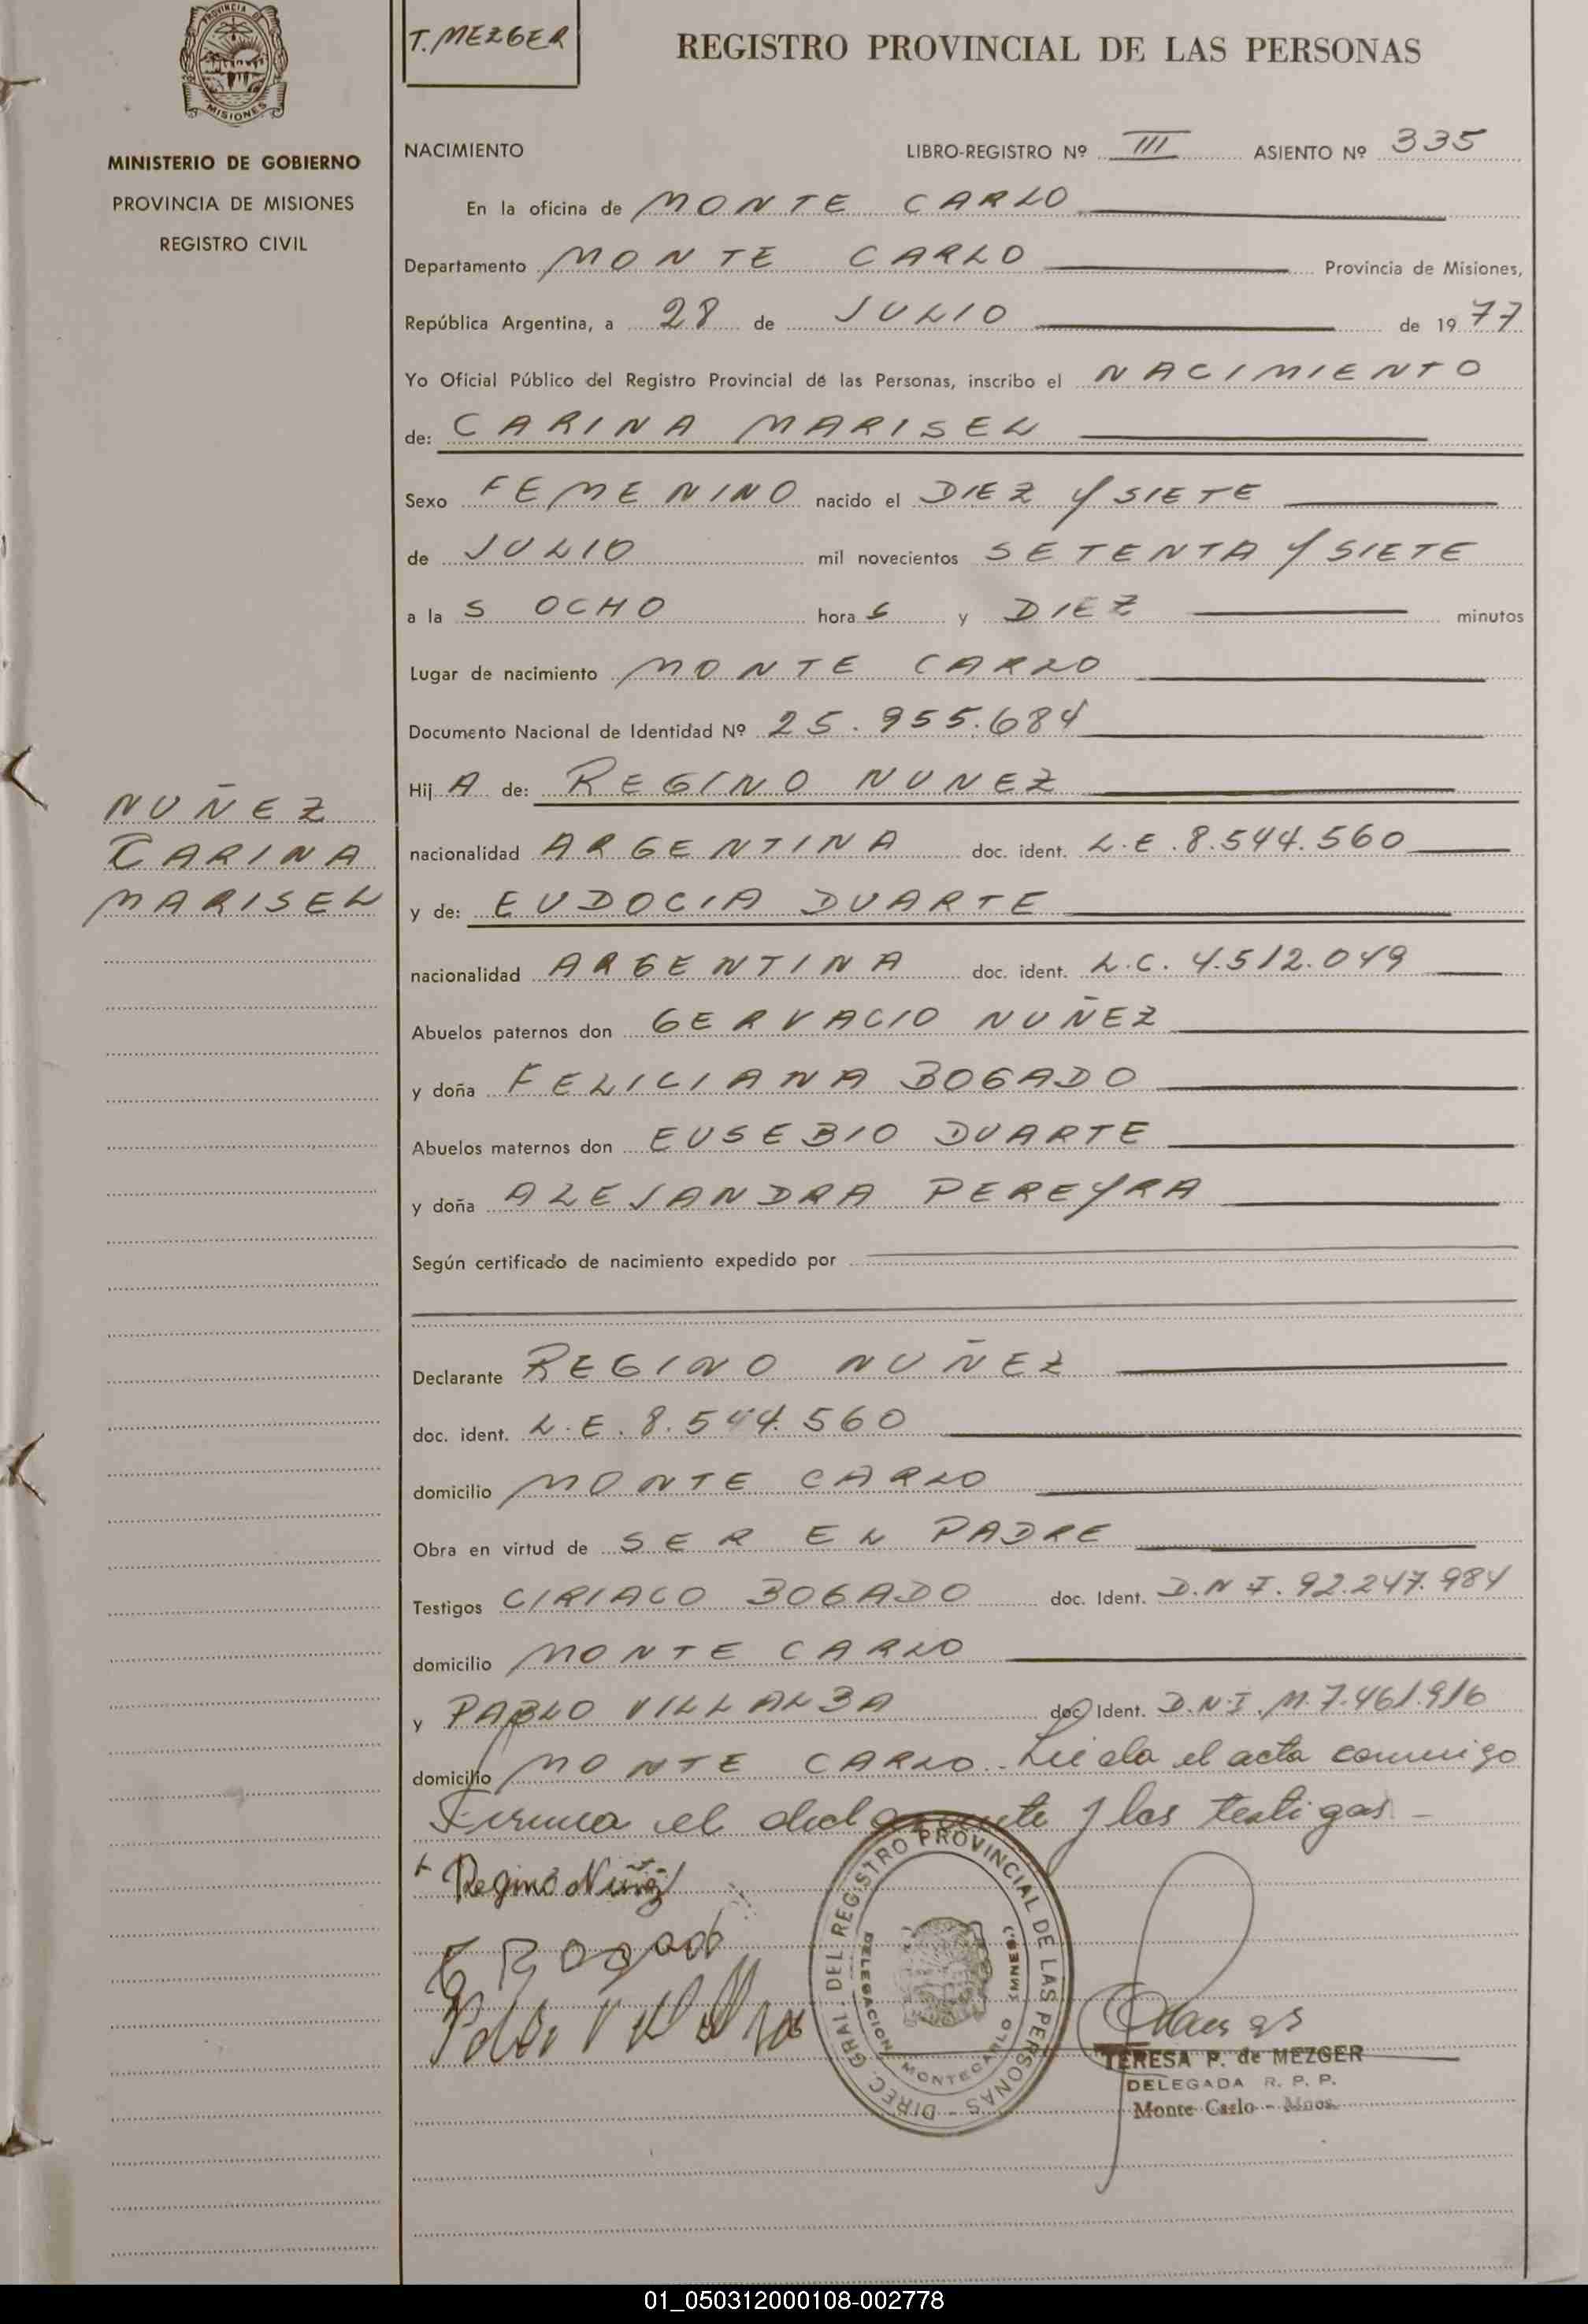 PROVINCIA DE
MISIONES
MINISTERIO DE GOBIERNO
PROVINCIA DE MISIONES
REGISTRO CIVIL
NUÑEZ
CARINA
MARISEL
T. MEZGER
REGISTRO PROVINCIAL DE LAS PERSONAS
NACIMIENTO LIBRO-REGISTRO Nº III ASIENTO Nº 335
En la oficina de MONTE CARLO
Departamento MONTE CARLO Provincia de Misiones,
República Argentina, a 28 de JULIO de 1977
Yo Oficial Público del Registro Provincial de las Personas, inscribo el NACIMIENTO
de: CARINA MARISEL
Sexo FEMENINO nacido el DIEZ Y SIETE
de JULIO mil novecientos SETENTA Y SIETE
a la S OCHO hora S y DIEZ minutos
Lugar de nacimiento MONTE CARLO
Documento Nacional de Identidad Nº 25.955.684
Hij A de: REGINO NUNEZ
nacionalidad ARGENTINA doc. ident. L.E.8.544.560
y de: EUDOCIA DUARTE
nacionalidad ARGENTINA doc. ident. L.C. 4.512.049
Abuelos paternos don GERVACIO NUÑEZ
y doña FELICIANA BOGADO
Abuelos maternos don EUSEBIO DUARTE
y doña ALEJANDRA PEREYRA
Según certificado de nacimiento expedido por
Declarante REGINO NUÑEZ
doc. ident. L.E.8.544.560
domicilio MONTE CARLO
Obra en virtud de SER EL PADRE
Testigos CIRIACO BOGADO doc. Ident. D.N.I.92.247.984
domicilio MONTE CARLO
y PABLO VILLALBA doc. Ident. D.N.I.M.7.461.916
domicilio MONTE CARLO. Leida el acta conmigo
Firma el declarante y los testigos -
Regino Nuñez
C Bogado
Pablo Villalba
DIREC. GRAL. DEL REGISTRO PROVINCIAL DE LAS PERSONAS -
DELEGACION MONTECARLO
TERESA P. de MEZGER
DELEGADA R. P. P.
Monte Carlo - Mnes.
01_050312000108-002778